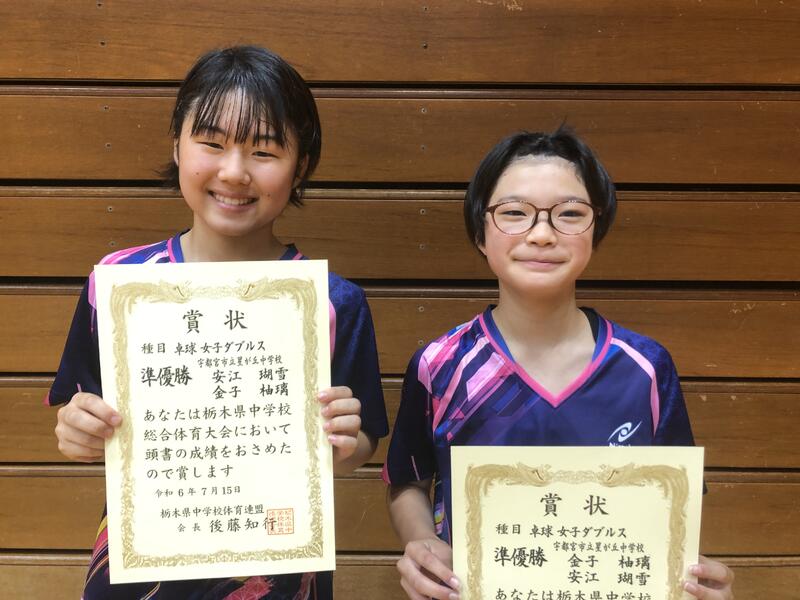 賞状
種目 卓球 女子ダブルス
宇都宮市立星が丘中学校
準優勝 安江 瑚雪
金子 柚璃
あなたは栃木県中学校
総合体育大会において
頭書の成績をおさめた
ので賞します
令和6年7月15日
栃木県中学校体育連盟
会長 後藤知行
賞状
種目 卓球 女子ダブルス
宇都宮市立星が丘中学校
準優勝 金子 柚璃
安江 瑚雪
あなたは栃木県中学校